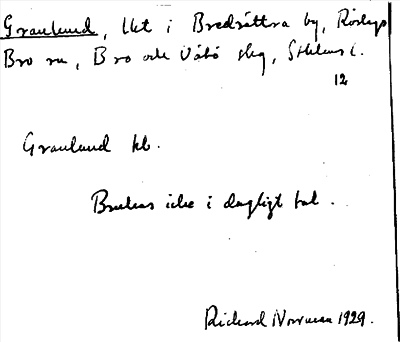 Granlund, lht i Bredsättra by, Rörlups
Bro sn, Bro och Vätö skg, Sthlms l.
12
Granlund hb.
Brukas icke i dagligt tal.
Rickard Norrman 1929.